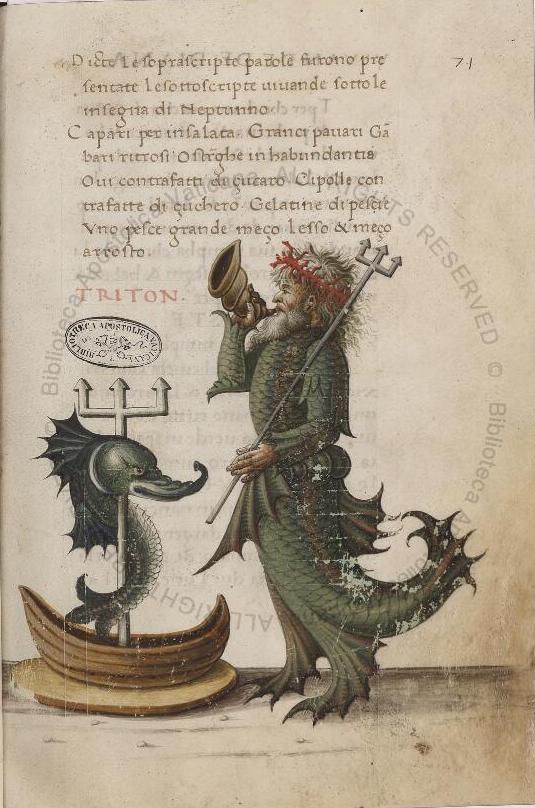 71
Dicte le soprascripte parole furono pre
sentate le sottoscripte uiuande sotto le
insegna di Neptunno
Capari per insalata. Granci pauari Gā
bari ritrosi Ostrighe in habundantia
Oui contrafatti di çucaro. Cipolle con
trafatte di çuchero. Gelatine di pescie
Vno pesce grande meço lesso & meço
arrosto.
TRITON.
BIBLIOTHECA APOSTOLICA VATICANA
Biblioteca Apostolica Vaticana. ALL RIGHTS RESERVED © Biblioteca